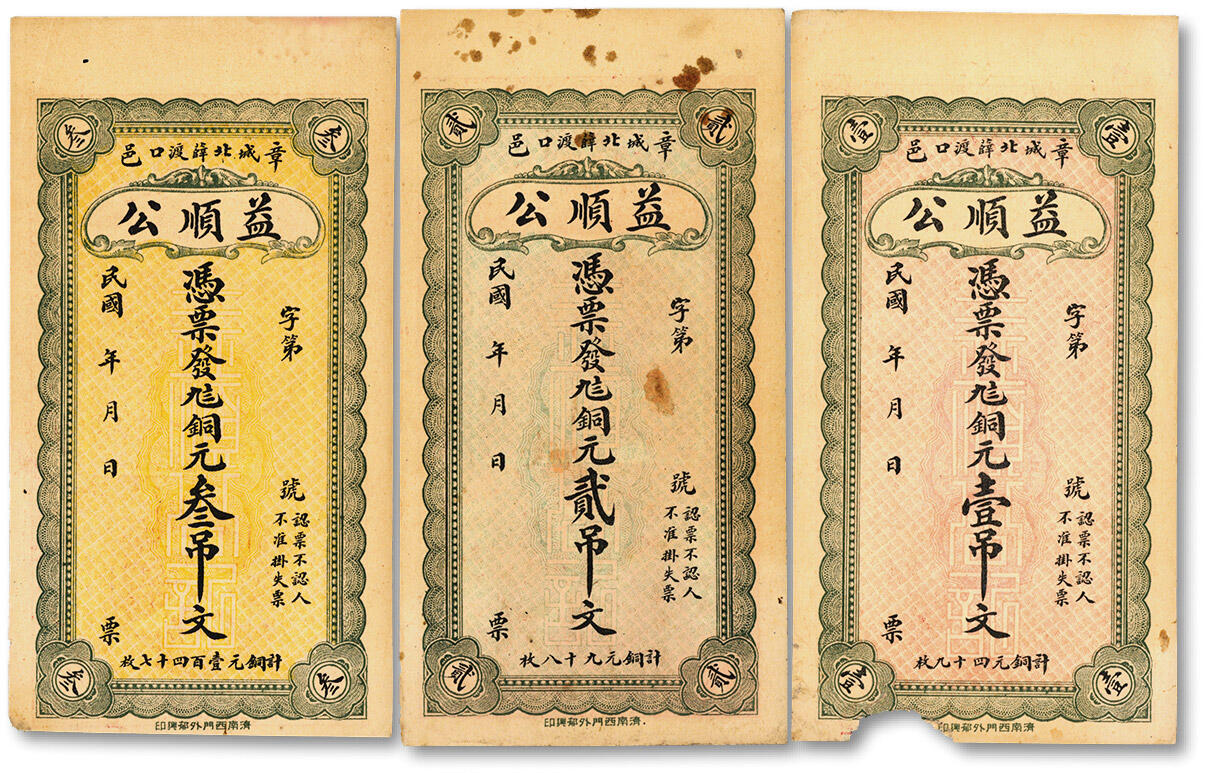 叁 叁
章城北薛渡口邑
益順公
字第 號
認票不認人
不准掛失票
憑票發銅元叁吊文
民國 年 月 日 票
計銅元壹百四十七枚
叁 叁
濟南西門外興印
貳 貳
章城北薛渡口邑
益順公
字第 號
認票不認人
不准掛失票
憑票發銅元貳吊文
民國 年 月 日 票
計銅元九十八枚
貳 貳
濟南西門外興印
壹 壹
章城北薛渡口邑
益順公
字第 號
認票不認人
不准掛失票
憑票發銅元壹吊文
民國 年 月 日 票
計銅元四十九枚
壹 壹
濟南西門外興印